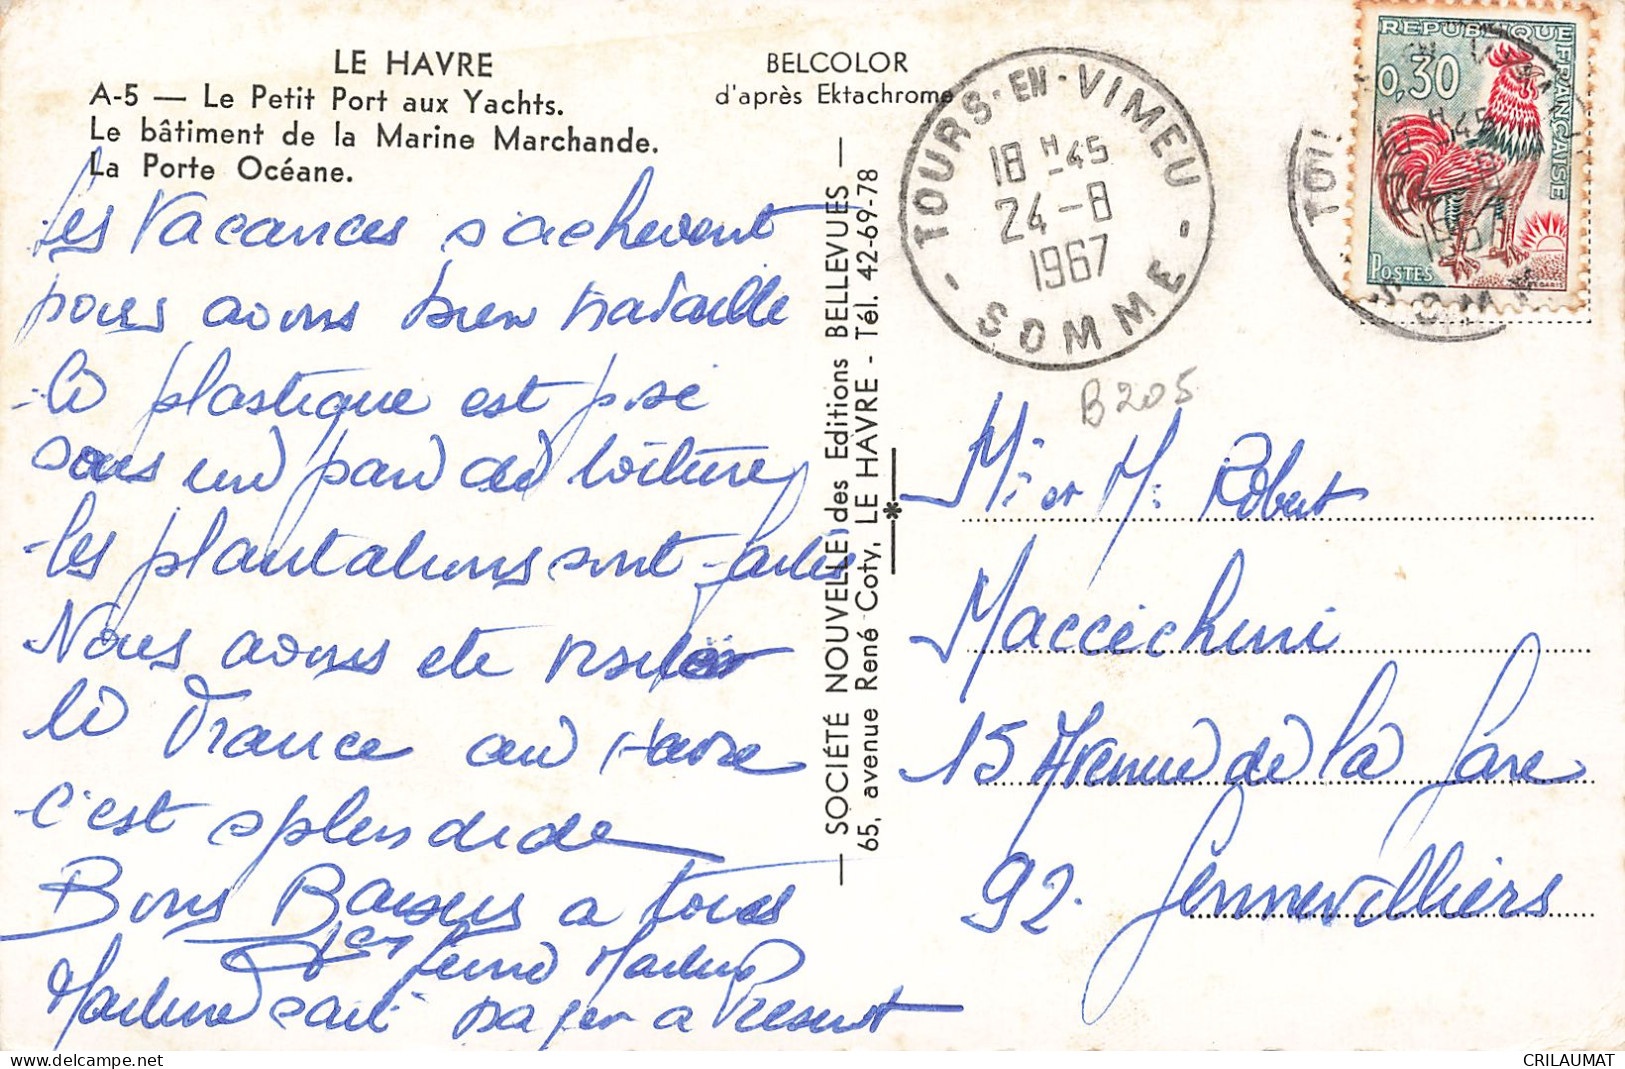 LE HAVRE
A-5 — Le Petit Port aux Yachts.
Le bâtiment de la Marine Marchande.
La Porte Océane.
BELCOLOR
d'après Ektachrome
Les Vacances s'achevent
nous avons bien travaillé
le plastique est posé
sous un pan de toiture
les plantations sont faites
Nous avons ete visiter
le France au Havre
c'est splendide
Bons Baisers a tous
Martine sait nager a Present
— SOCIÉTÉ NOUVELLE des Editions BELLEVUES —
65, avenue René Coty, LE HAVRE - Tél. 42-69-78
TOURS-EN-VIMEU
18 H -45
24-8
1967
SOMME
REPUBLIQUE FRANÇAISE
0,30
POSTES
B205
Mr et Me Robert
Maccechini
15 Avenue de la Gare
92. Gennevilliers
CRILAUMAT